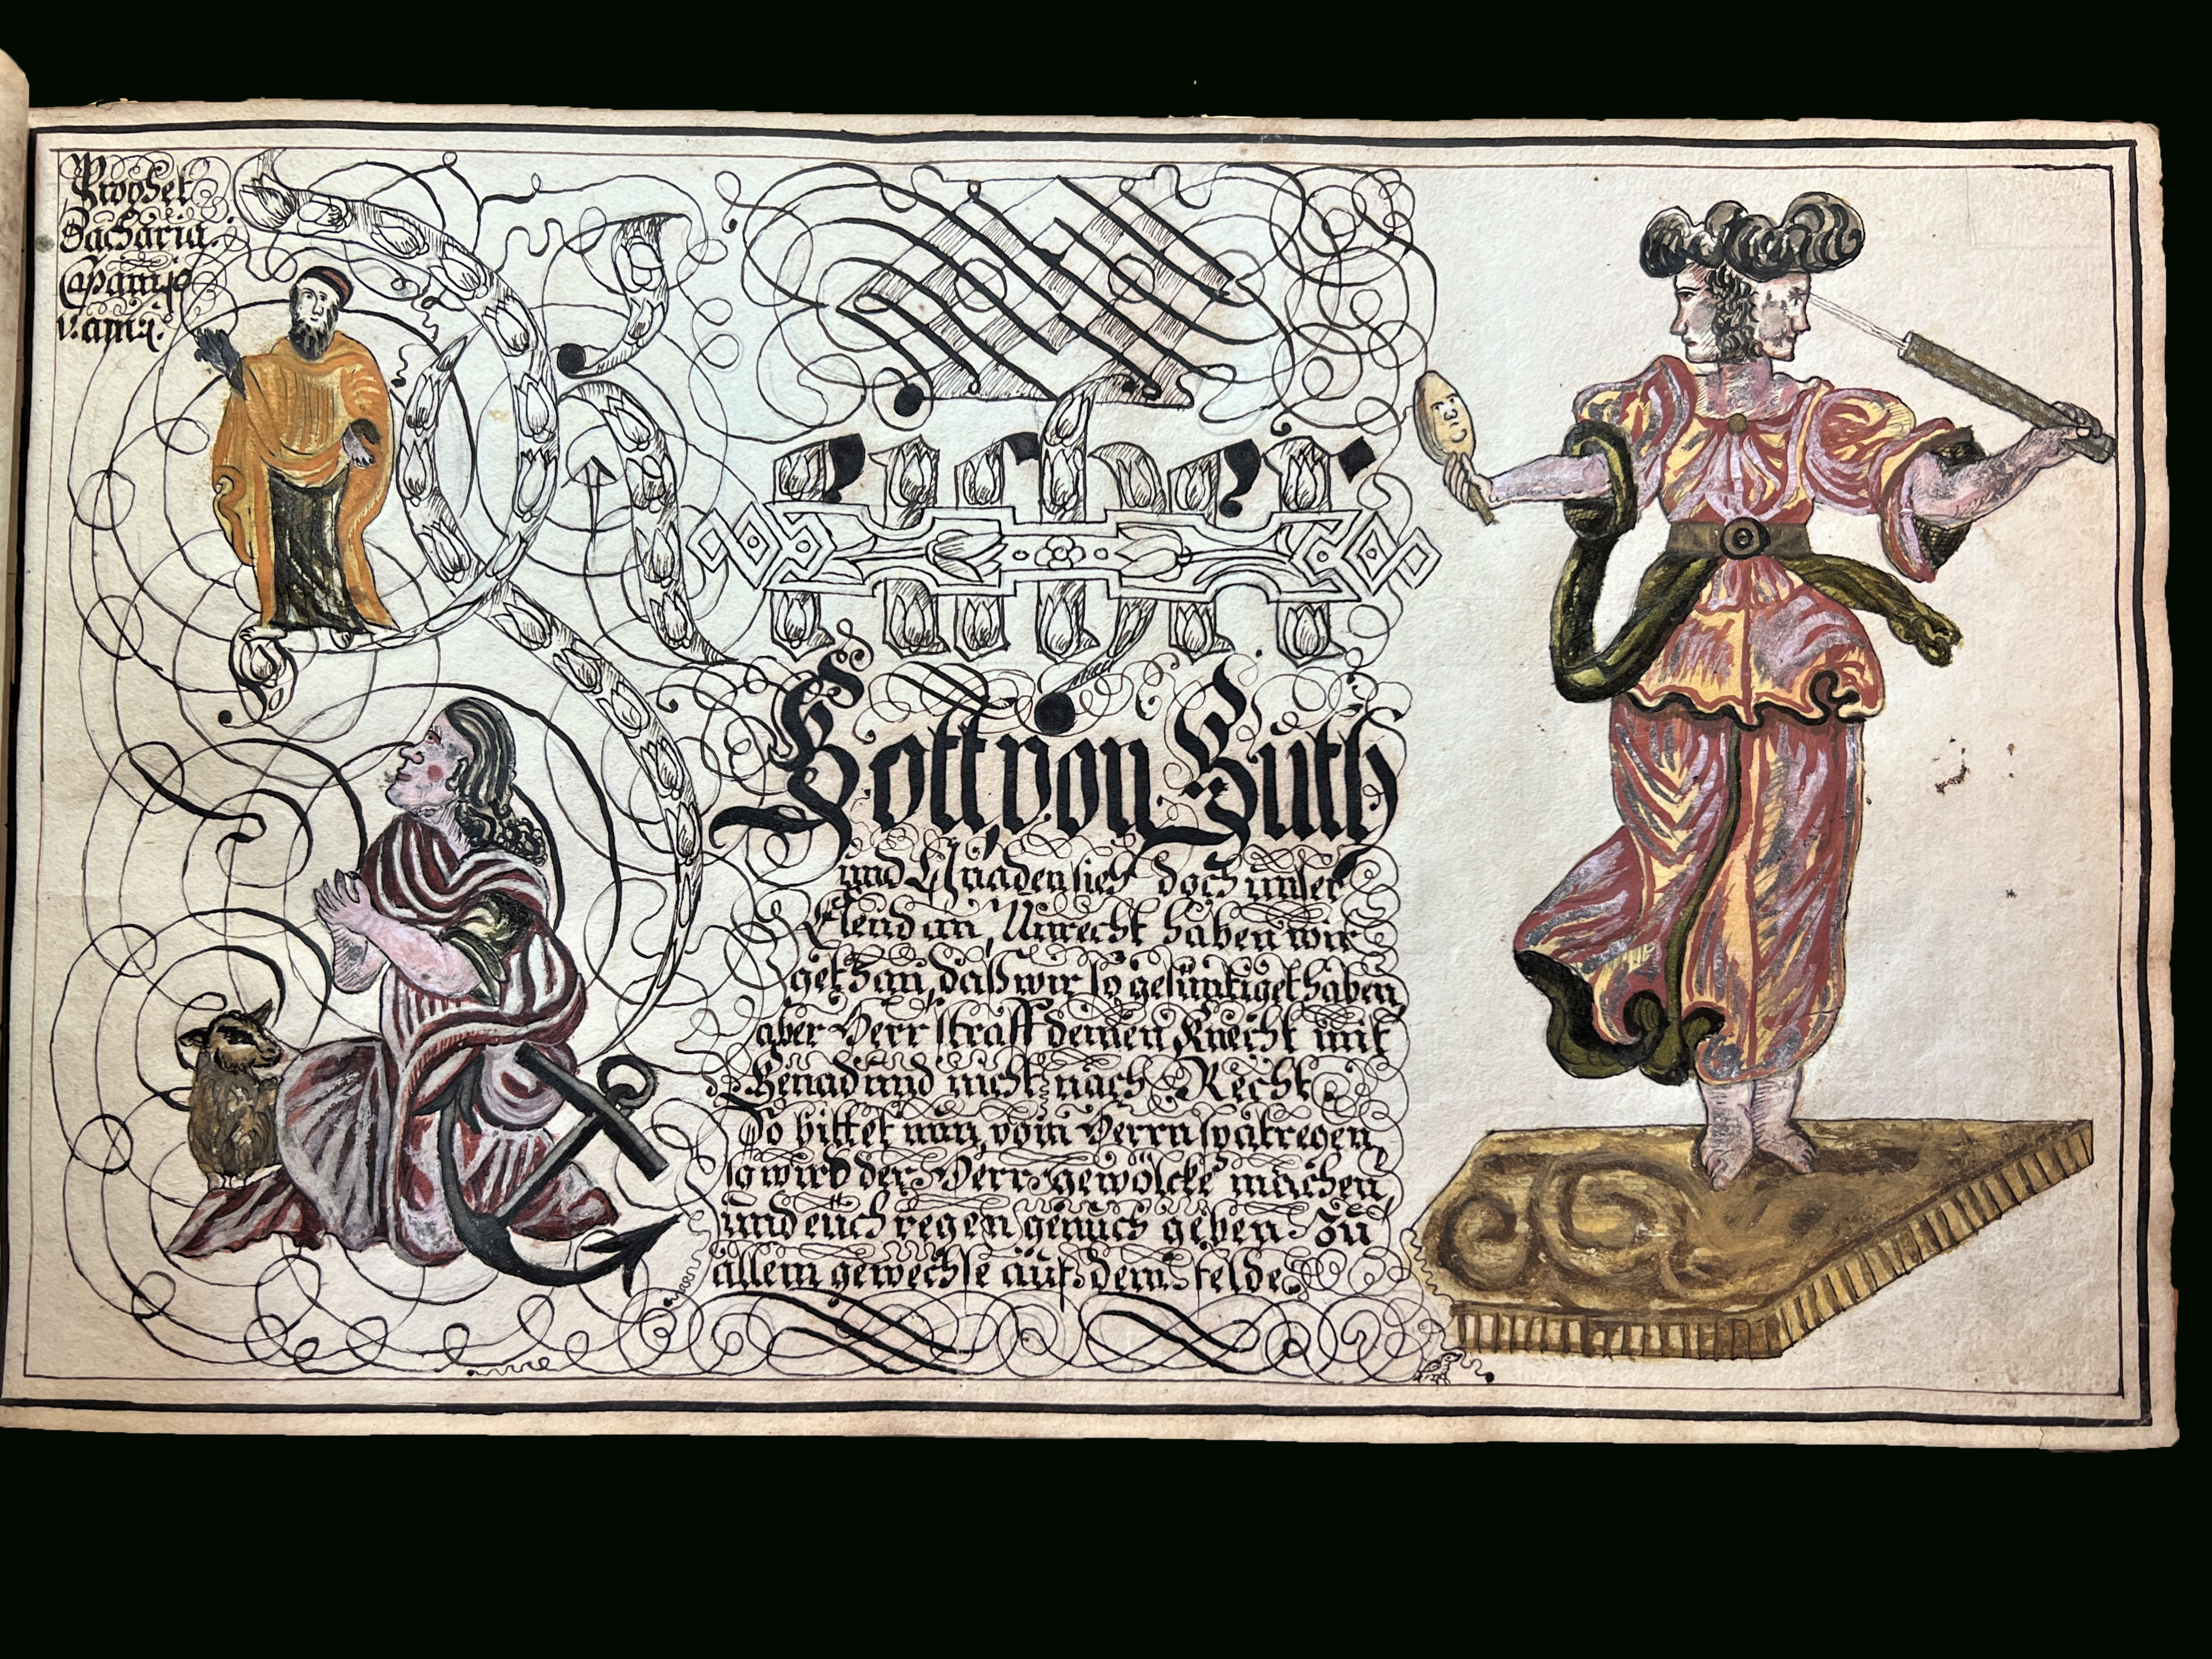 Prophet
Zacharia.
Cap: am: 10
v: am: 1.
Reicher
Gott, von Güth
und Gnaden sieh doch unser
Elend an, Unrecht haben wir
gethan, daß wir so gesündiget haben,
aber Herr straff deinen Knecht mit
Genad und nicht nach Recht
So bittet nun, vom Herrn spatregen,
so wird der Herr gewölcke machen,
und euch regen genuch geben zu
allem gewechse auf dem felde